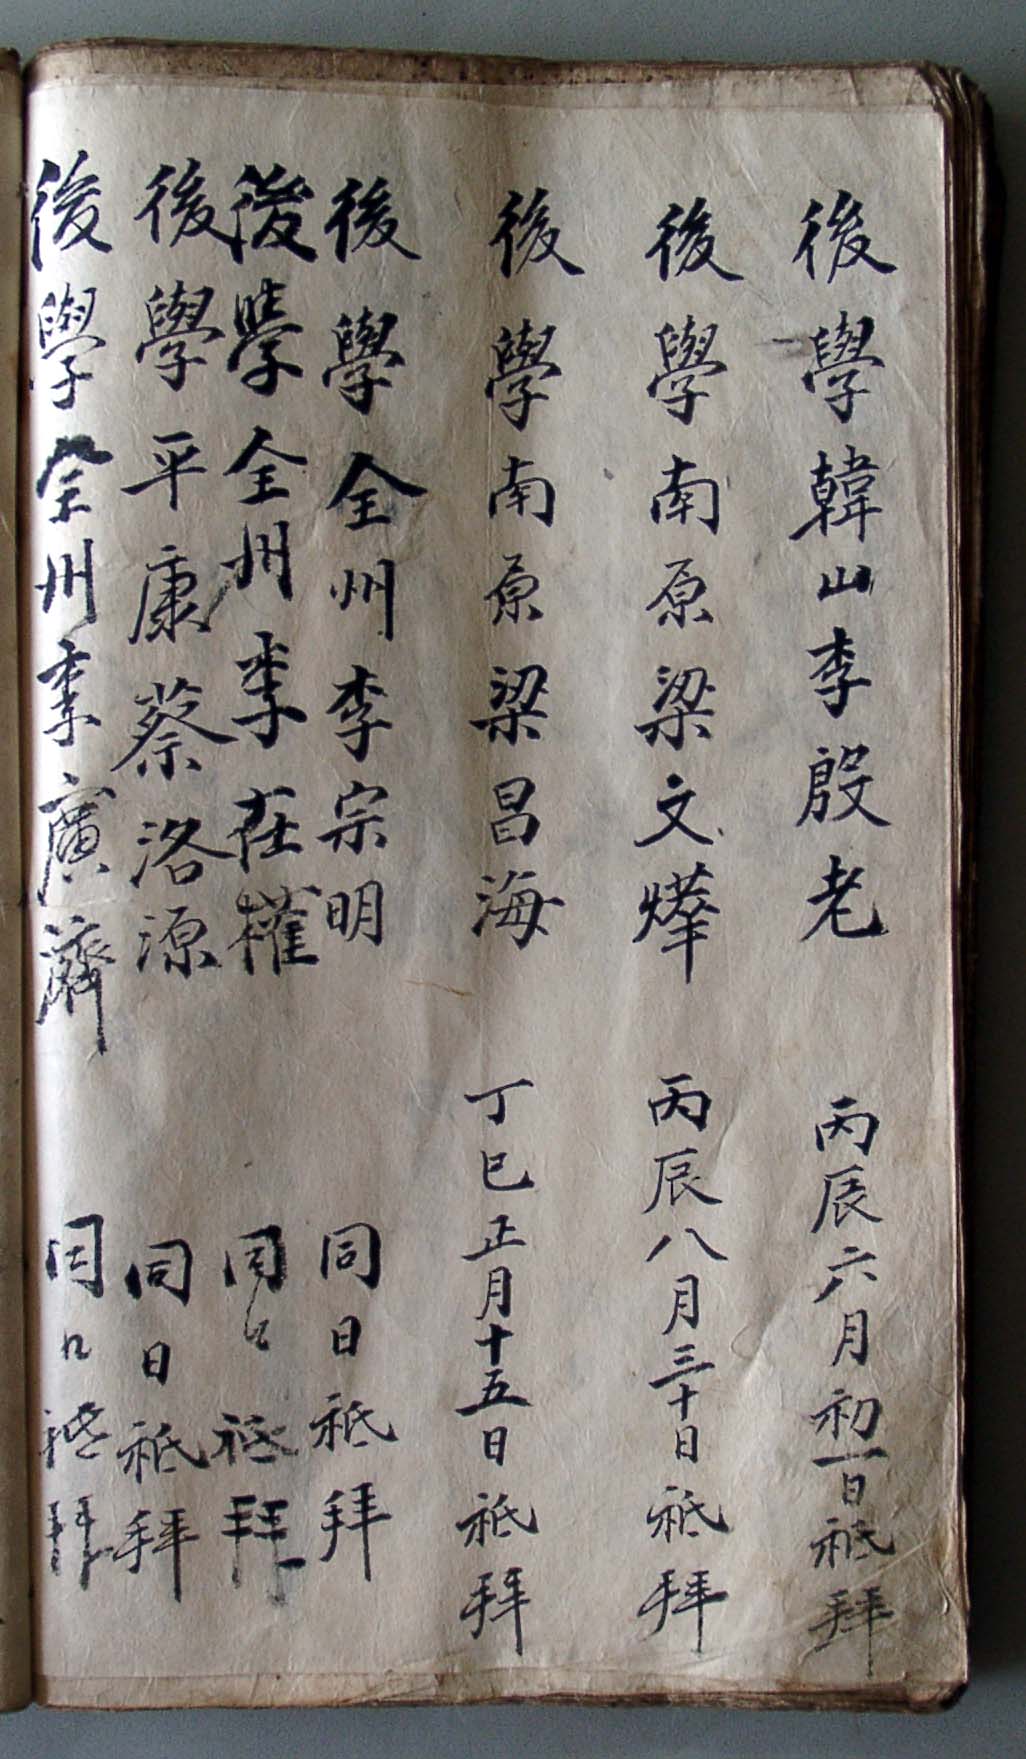 後學韓山李殷老 丙辰六月初一日祗拜
後學南原梁文燁 丙辰八月三十日祗拜
後學南原梁昌海 丁巳正月十五日祗拜
後學全州李宗明 同日祗拜
後學全州李在權 同日祗拜
後學平康蔡洛源 同日祗拜
後學全州李廣濟 同日祗拜